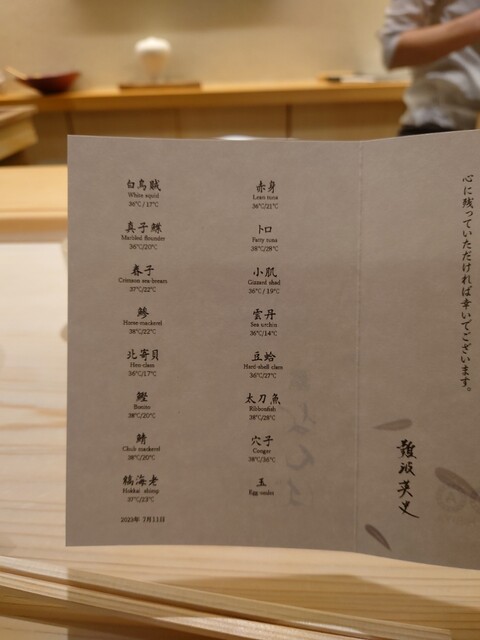 白烏賊
White squid
36℃/17℃
真子鰈
Marbled flounder
36℃/20℃
春子
Crimson sea bream
37℃/22℃
鯵
Horse mackerel
38℃/22℃
北寄貝
Hen clam
36℃/17℃
鰹
Bonito
38℃/20℃
鯖
Chub mackerel
38℃/20℃
縞海老
Hokkai shrimp
37℃/19℃
2023年 7月11日
赤身
Lean tuna
36℃/21℃
トロ
Fatty tuna
38℃/28℃
小肌
Gizzard shad
36℃/19℃
雲丹
Sea urchin
36℃/14℃
豆蛤
Hard-shell clam
36℃/27℃
太刀魚
Ribbonfish
38℃/28℃
穴子
Conger
38℃/36℃
玉
Egg omlet
心に残っていただければ幸いでございます。
難波英史